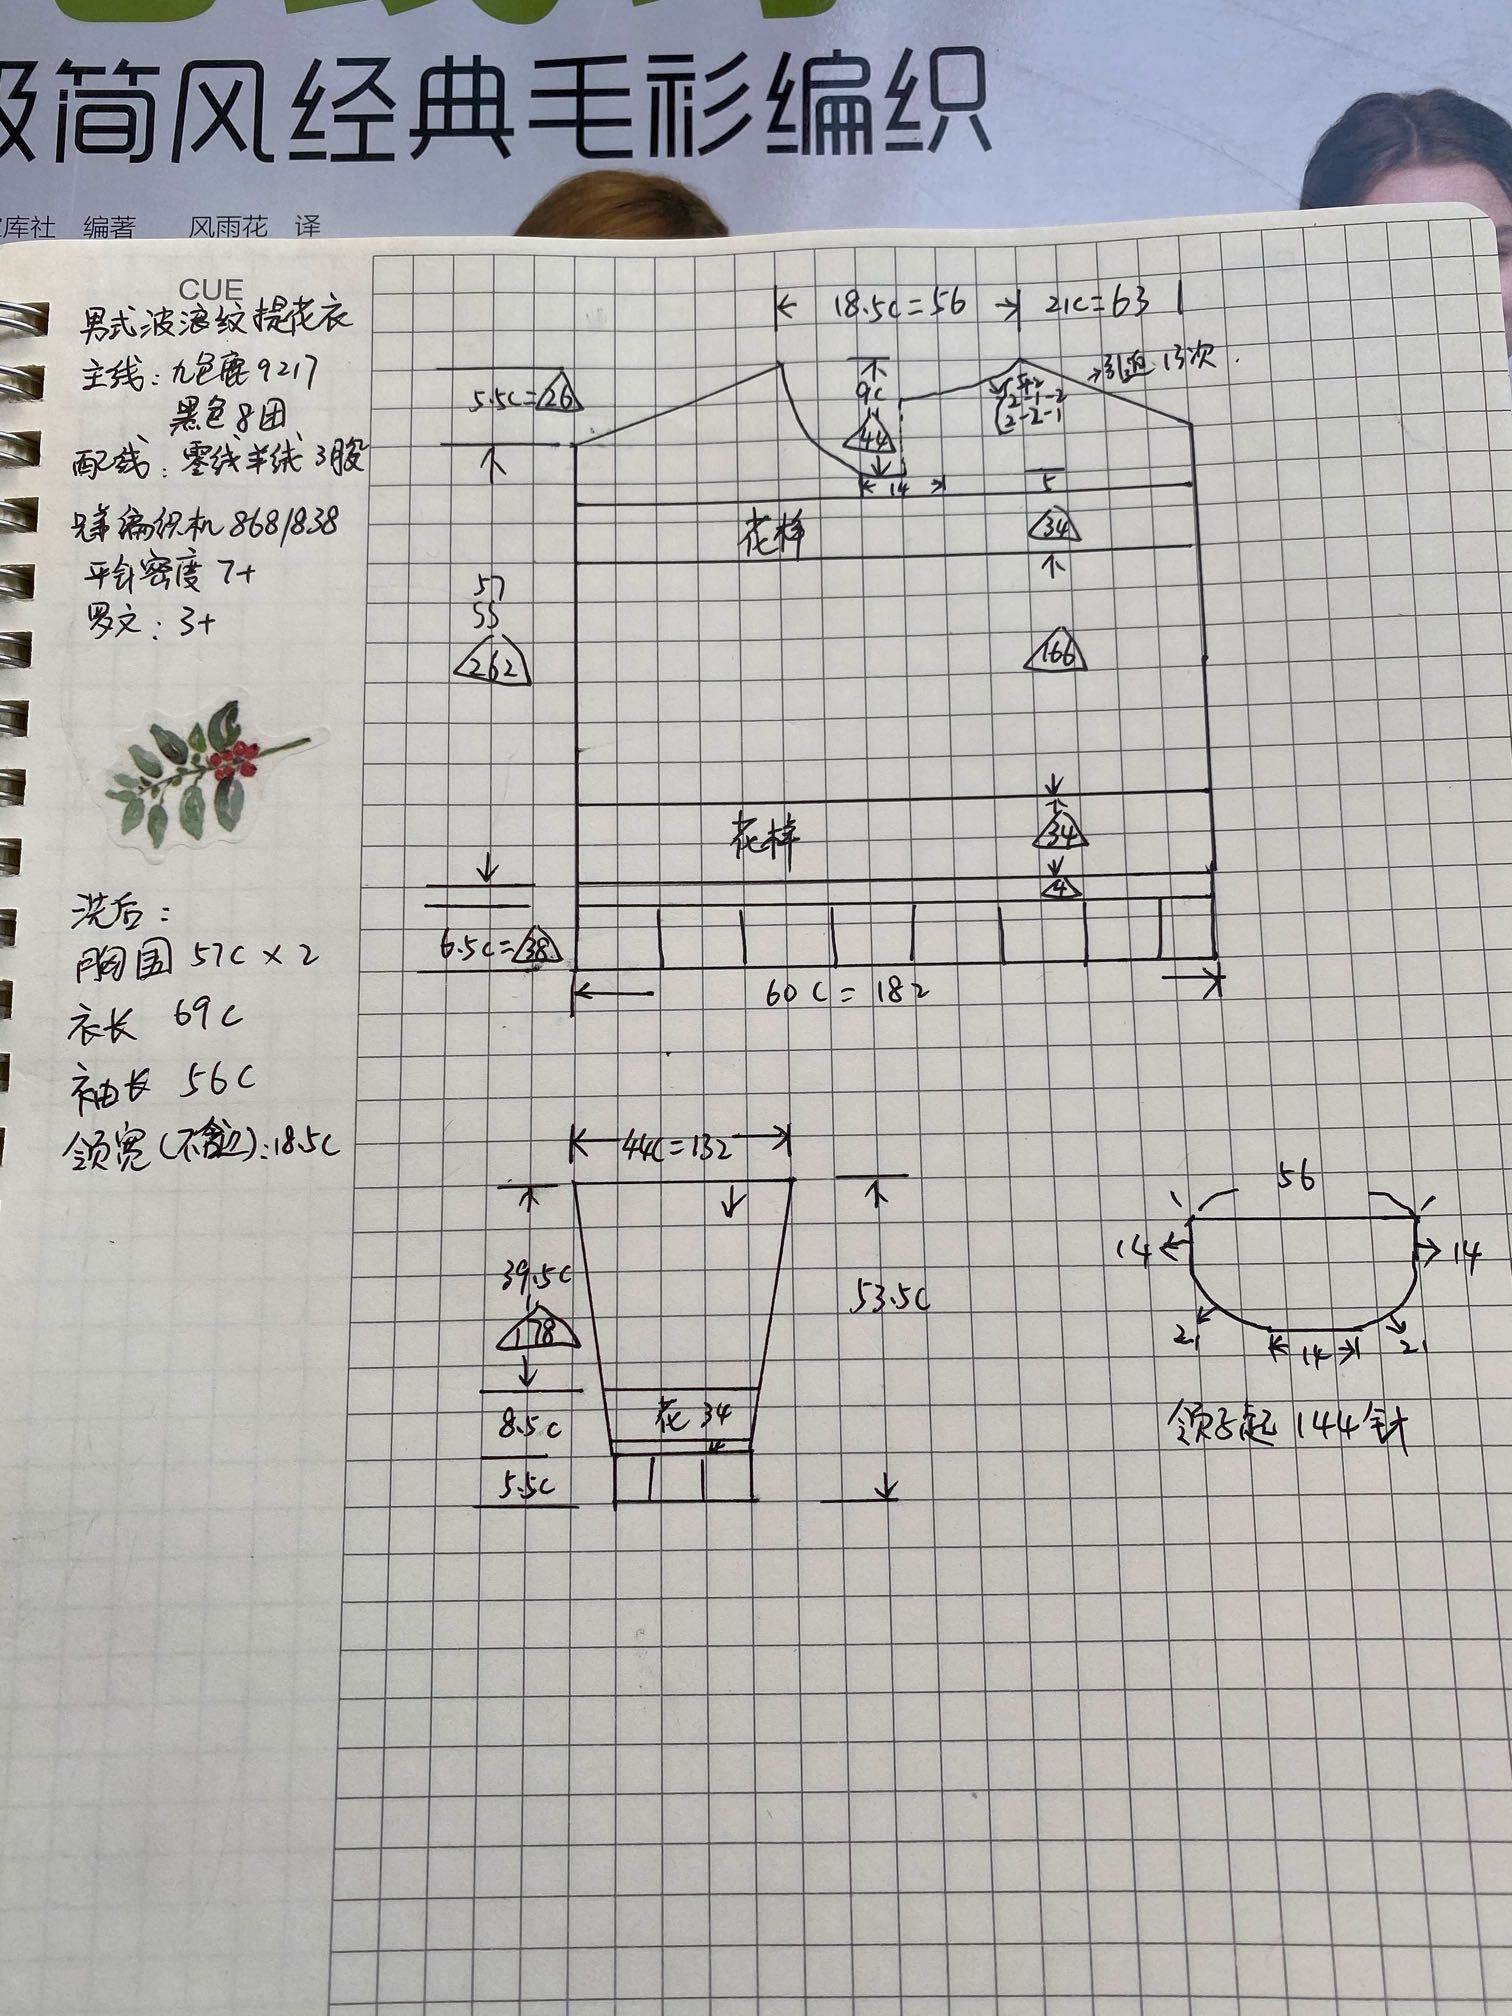 极简风经典毛衫编织
库社 编著 风雨花 译
CUE
男式波浪纹提花衣
主线:九色鹿9217
黑色8团
配线:零线羊绒3股
编织机868/838
平针密度7+
罗文:3+
洗后:
胸围 57C×2
衣长 69C
袖长 56C
领宽(不含边):18.5C
18.5C=56
21C=63
5.5C=26
9C
44
14
5+2
2-1-2
2-2-1
引返13次.
5
花样
34
57
55
262
166
花样
34
4
6.5C=38
60C=182
44C=132
39.5C
178
53.5C
8.5C
花34
4
5.5C
56
14
14
21
14
21
领子起144针